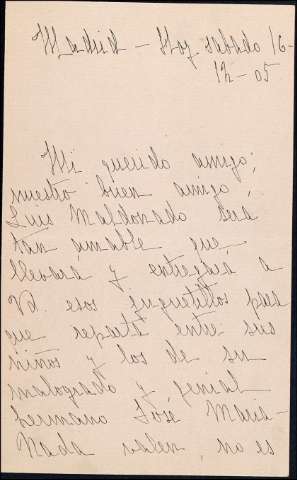 Madrid - Hoy sabado 16-
12-05
Mi querido amigo;
nuestro buen amigo,
Luis Maldonado será
tan amable que
llevará y entregará a
Vd. esos juguetillos para
que reparta entre sus
niños y los de su
malogrado y genial
hermano José Maria-
Nada valen, no es